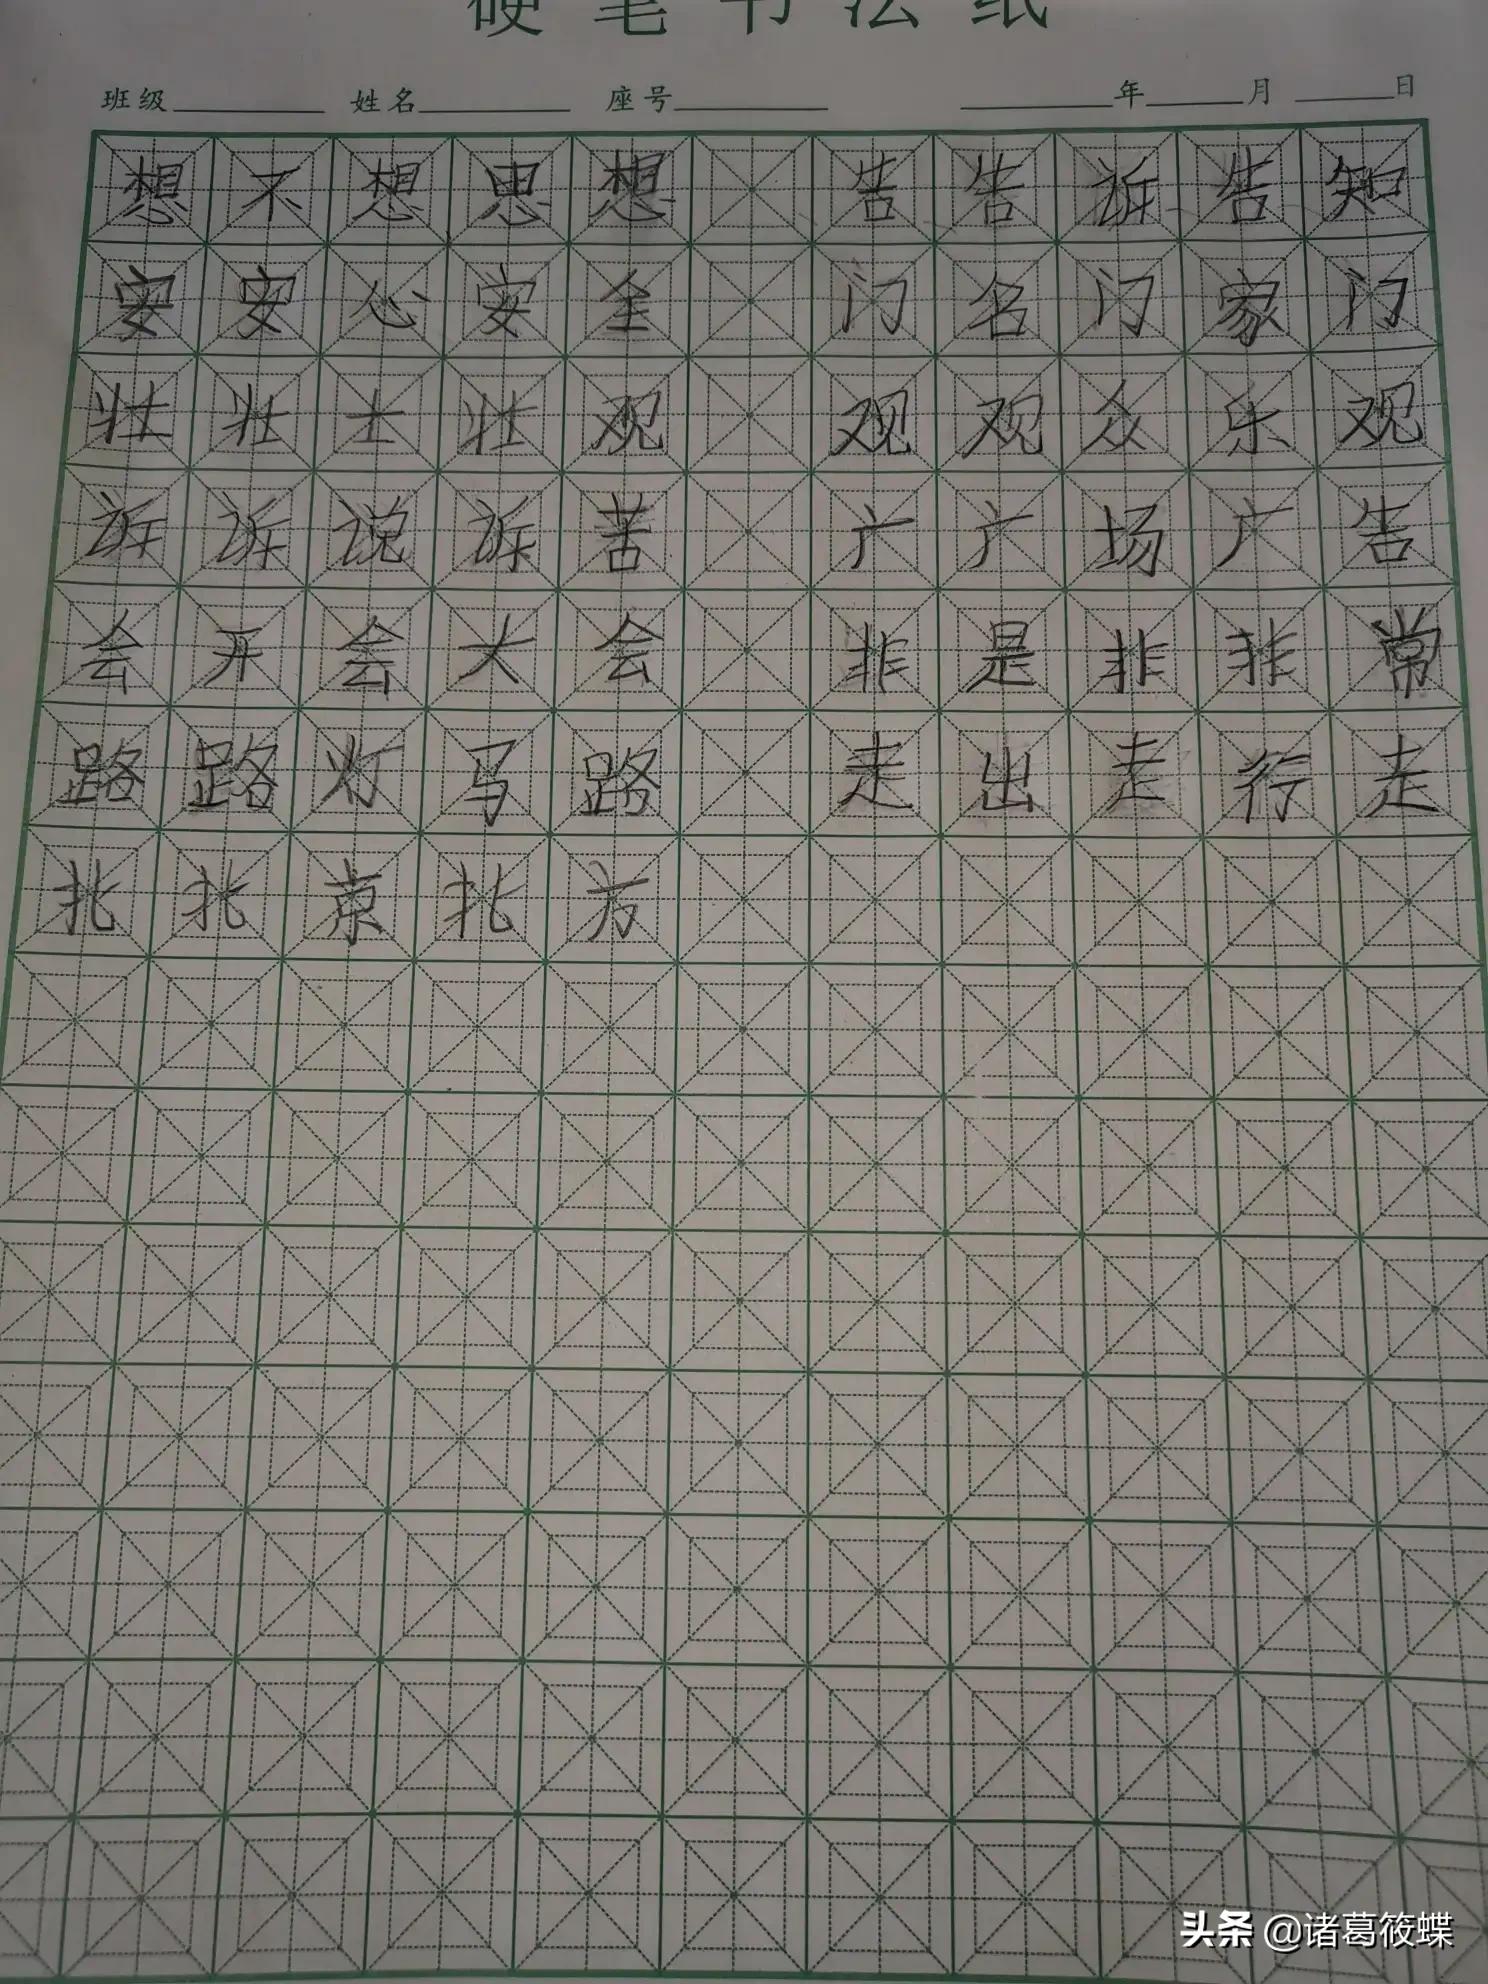 硬笔书法纸
班级 姓名 座号 年 月 日
想不想思想 告告诉告知
安安心安全 门名门家门
壮壮士壮观 观观众乐观
诉诉说诉苦 广广场广告
会开会大会 非是非非常
路路灯马路 走出走行走
北北京北方
头条 @诸葛筱蝶